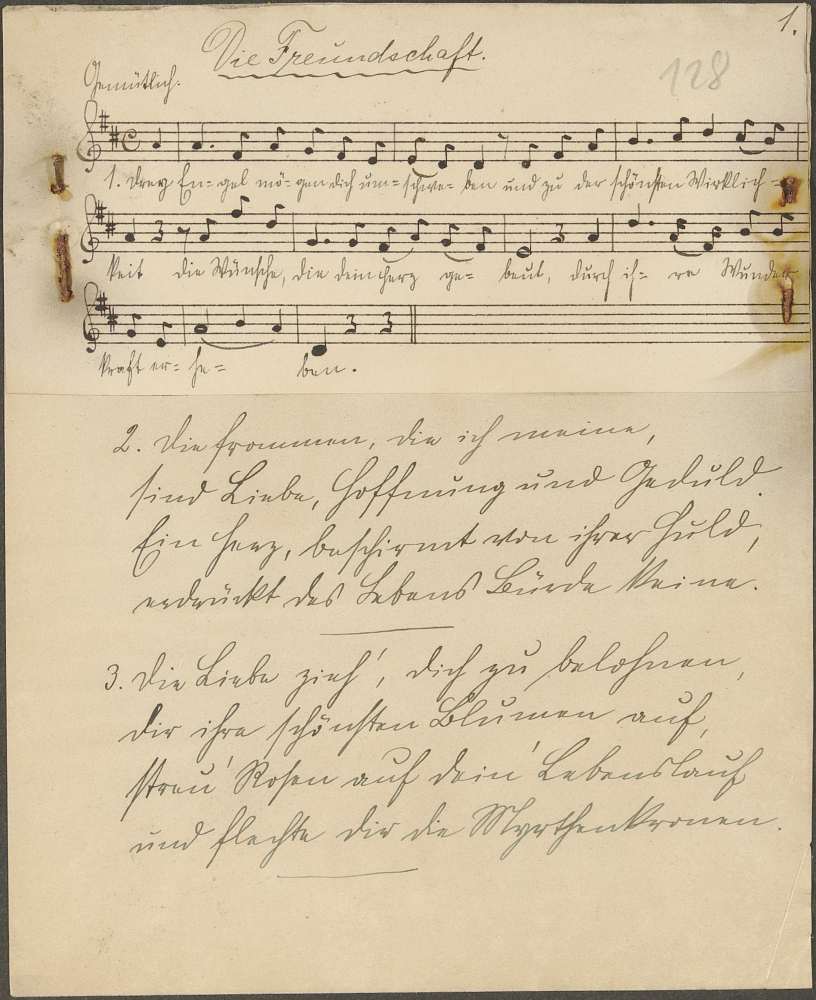 1.
Die Freundschaft.
128
Gemütlich.
1. Drey En-gel mö-gen dich um-schwe-ben und zu der schönsten Wirklich-
keit die Wünsche, die dein Herz ge-beut, durch ih-re Wunder
kraft er-he-ben.
2. Die frommen, die ich meine,
sind Liebe, Hoffnung und Geduld.
Ein Herz, beschirmt von ihrer Huld,
erdrückt des Lebens Bürde keine.
3. Die Liebe zieh', dich zu belohnen,
dir ihre schönsten Blumen auf,
streu' Rosen auf dein' Lebenslauf
und flechte dir die Myrthenkronen.